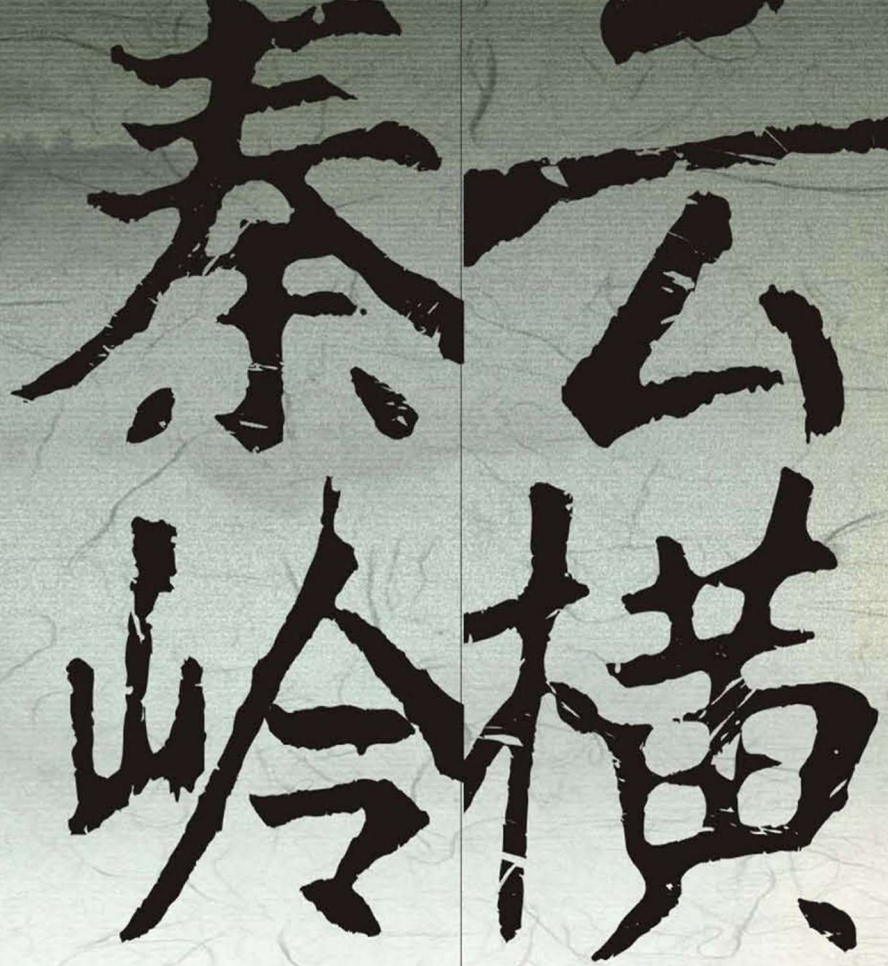 云横
秦岭